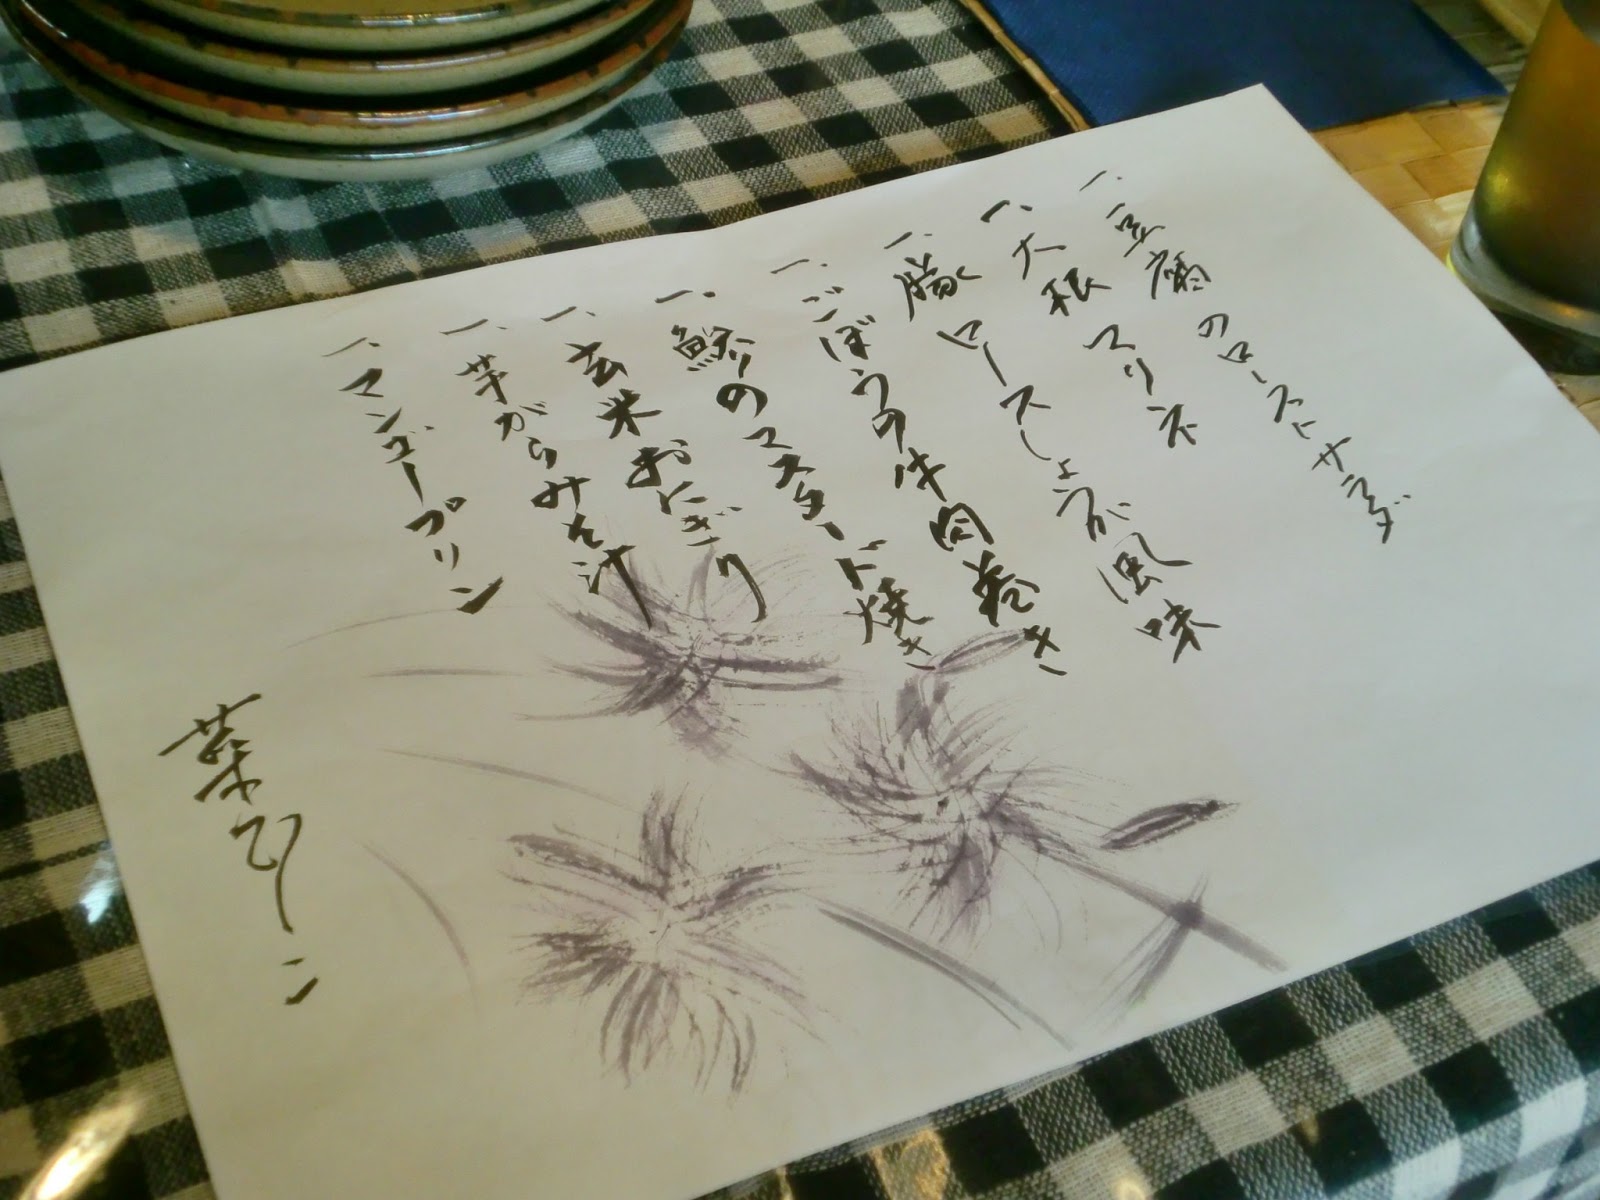 一、豆腐のローストサラダ
一、大根マリネ
一、豚ロースしょうが風味
一、ごぼうの牛肉巻き
一、鯵のマスタード焼き
一、玄米おにぎり
一、芋がらみそ汁
一、マンゴープリン
菜